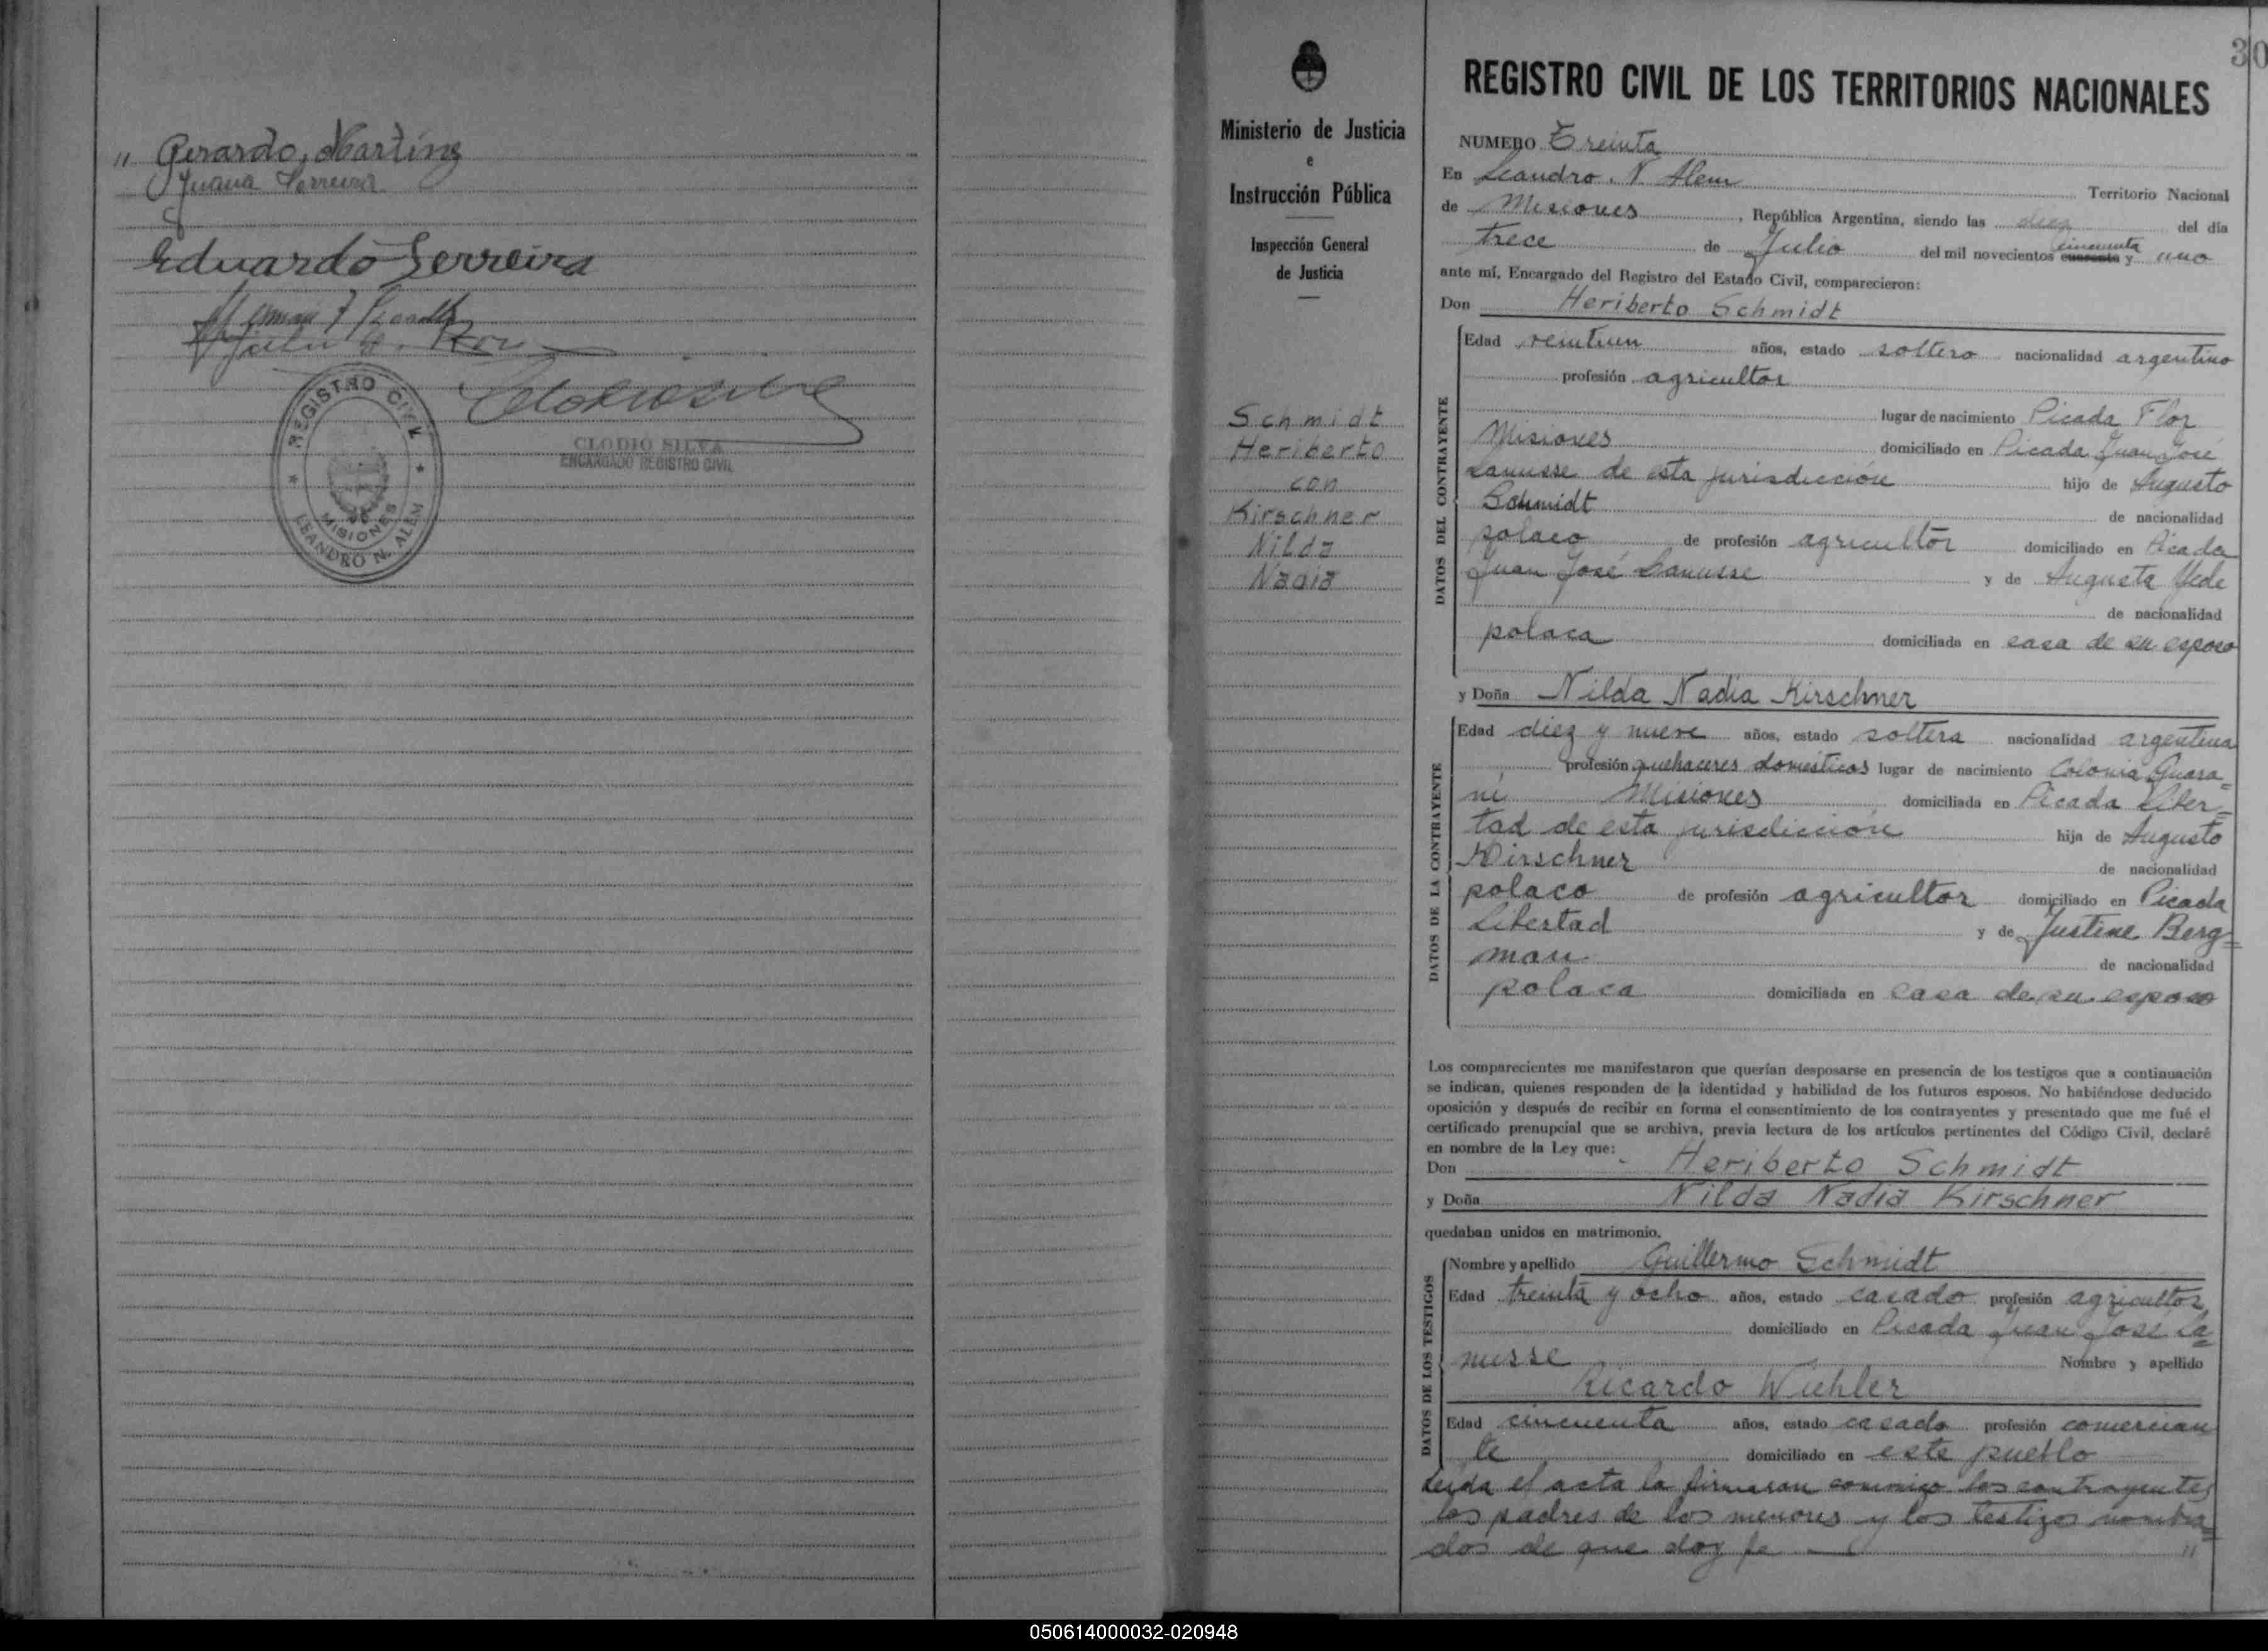 " Gerardo Martins
Juana Ferreira
Eduardo Ferreira
REGISTRO CIVIL
MISIONES
LEANDRO N. ALEM
CLODIO SILVA
ENCARGADO REGISTRO CIVIL
30
Ministerio de Justicia
e
Instrucción Pública
Inspección General
de Justicia
Schmidt
Heriberto
con
Kirschner
Nilda
Nadia
REGISTRO CIVIL DE LOS TERRITORIOS NACIONALES
NUMERO Treinta
En Leandro N Alem Territorio Nacional
de Misiones, República Argentina, siendo las diez del día
trece de Julio del mil novecientos cuarenta cincuenta y uno
ante mí, Encargado del Registro del Estado Civil, comparecieron:
Don Heriberto Schmidt
DATOS DEL CONTRAYENTE
Edad veintiun años, estado soltero nacionalidad argentino
profesión agricultor
lugar de nacimiento Picada Flor
Misiones domiciliado en Picada Juan José
Lanusse de esta jurisdicción hijo de Augusto
Schmidt de nacionalidad
polaco de profesión agricultor domiciliado en Picada
Juan José Lanusse y de Augusta
de nacionalidad
polaca domiciliada en casa de su esposo
y Doña Nilda Nadia Kirschner
DATOS DE LA CONTRAYENTE
Edad diez y nueve años, estado soltera nacionalidad argentina
profesión quehaceres domésticos lugar de nacimiento Colonia Guara=
ní Misiones domiciliada en Picada Liber=
tad de esta jurisdicción hija de Augusto
Kirschner de nacionalidad
polaco de profesión agricultor domiciliado en Picada
Libertad y de Justine Berg=
man de nacionalidad
polaca domiciliada en casa de su esposo
Los comparecientes me manifestaron que querían desposarse en presencia de los testigos que a continuación
se indican, quienes responden de la identidad y habilidad de los futuros esposos. No habiéndose deducido
oposición y después de recibir en forma el consentimiento de los contrayentes y presentado que me fué el
certificado prenupcial que se archiva, previa lectura de los artículos pertinentes del Código Civil, declaré
en nombre de la Ley que:
Don Heriberto Schmidt
y Doña Nilda Nadia Kirschner
quedaban unidos en matrimonio.
DATOS DE LOS TESTIGOS
Nombre y apellido Guillermo Schmidt
Edad treinta y ocho años, estado casado profesión agricultor
domiciliado en Picada Juan José La=
nusse Nombre y apellido
Ricardo Wiehler
Edad cincuenta años, estado casado profesión comercian
te domiciliado en este pueblo
Leída el acta la firmaron conmigo los contrayentes
los padres de los menores y los testigos nombra=
dos de que doy fe "
050614000032-020948